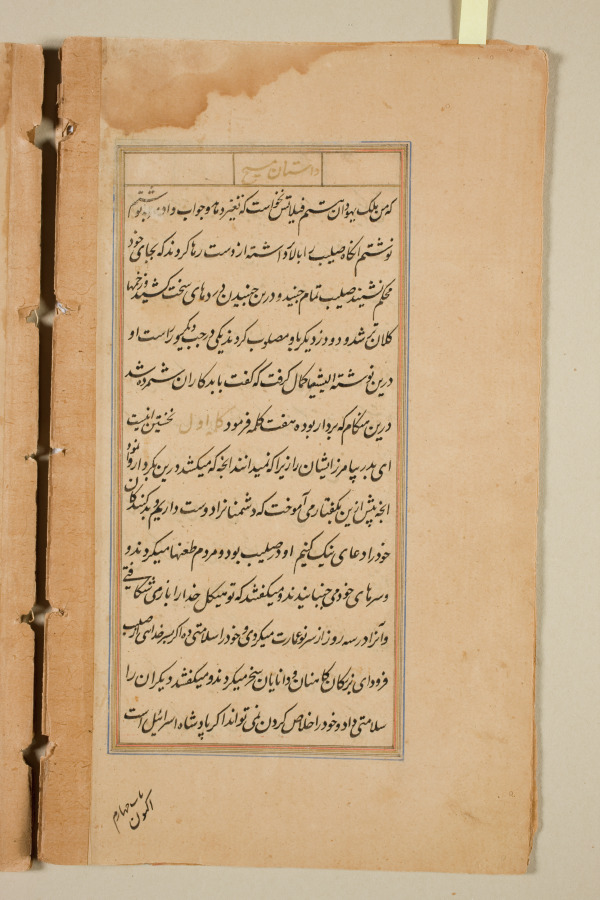 داستان مسیح
که من ملک یهودان هستم فیلاتس نخواست که تغییر دهد و جواب داد نوشتم
نوشتم آنگاه صلیب را بالا داشته از دست رها کردند که بجای خود
محکم نشیند صلیب تمام جنبید و درین جنبیدن دردهای سخت کشید و زخمها
کلان تر شد و دو دزد دیگر با او مصلوب کردند یکی در چپ و یکی بر راست او
درین نوشته الیشعیا کمال گرفت که گفت با بدکاران شمرده شد
درین هنگام که بردار بوده هفت کلمه فرمود کلمه اول نخستین اینست
ای پدر بیامرز ایشان را زیرا که نمیدانند آنچه که میکنند درین کردار
آنچه پیش ازین بگفتار می آموخت که دشمنانرا دوست داریم و بدکنندگان
خود را دعای نیک کنیم او در صلیب بود و مردم طعنها میکردند و
و سرهای خود می جنبانیدند و میگفتند که تو هیکل خدا را بازمی شکافتی
و آنرا در سه روز از سر نو عمارت میکردی خود را سلامتی ده اگر پسر خدای از صلیب
فرود آی بزرگان کاهنان و دانایان سخر میکردند و میگفتند دیگران را
سلامتی داد و خود را خلاص کردن نمی تواند اگر پادشاه اسرائیل است
باب چهارم
اکنون